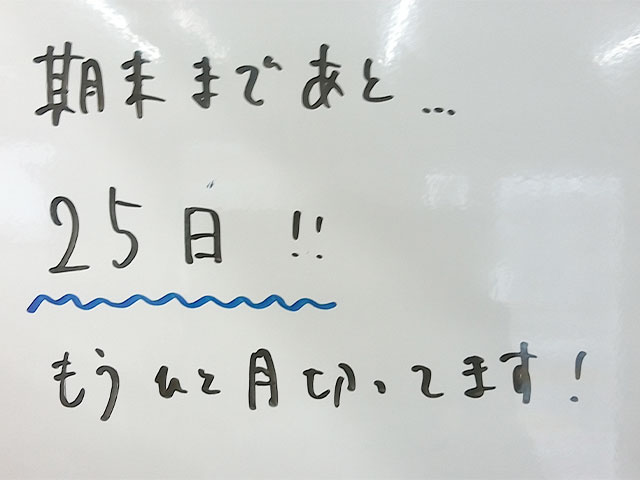 期末まであと...
25日!!
もうひと月切ってます!